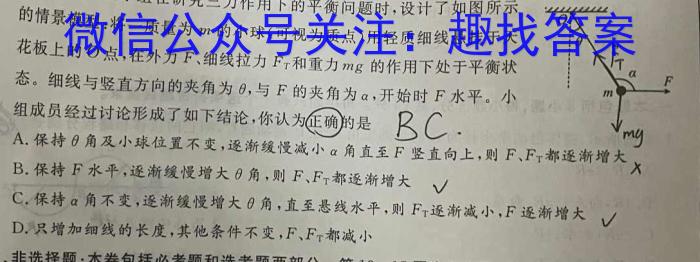 组在研究三力作用下的平衡问题时,设计了如图所示
的情景模型,将一质量为m的小球(可视为质点)用轻质细线悬挂于天
微信公众号关注:趣找答案
花板上的O点,在外力F、细线拉力FT和重力mg的作用下处于平衡状
态。细线与竖直方向的夹角为θ,与F的夹角为α,开始时F水平。小
组成员经过讨论形成了如下结论,你认为正确的是 BC.
A.保持θ角及小球位置不变,逐渐缓慢减小α角直至F竖直向上,则F、FT都逐渐增大 ×
B.保持F水平,逐渐缓慢增大θ角,则F、FT都逐渐增大 √
C.保持α角不变,逐渐缓慢增大θ角,直至悬线水平,则FT逐渐减小,F逐渐增大 √
D.只增加细线的长度,其他条件不变,F、FT都减小
非选择题:本卷包括必考题和选考题两部分。
θ
FT
α
m
F
mg